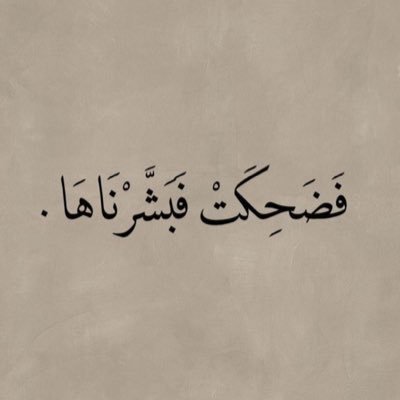 فَضَحِكَتْ فَبَشَّرْنَاهَا .